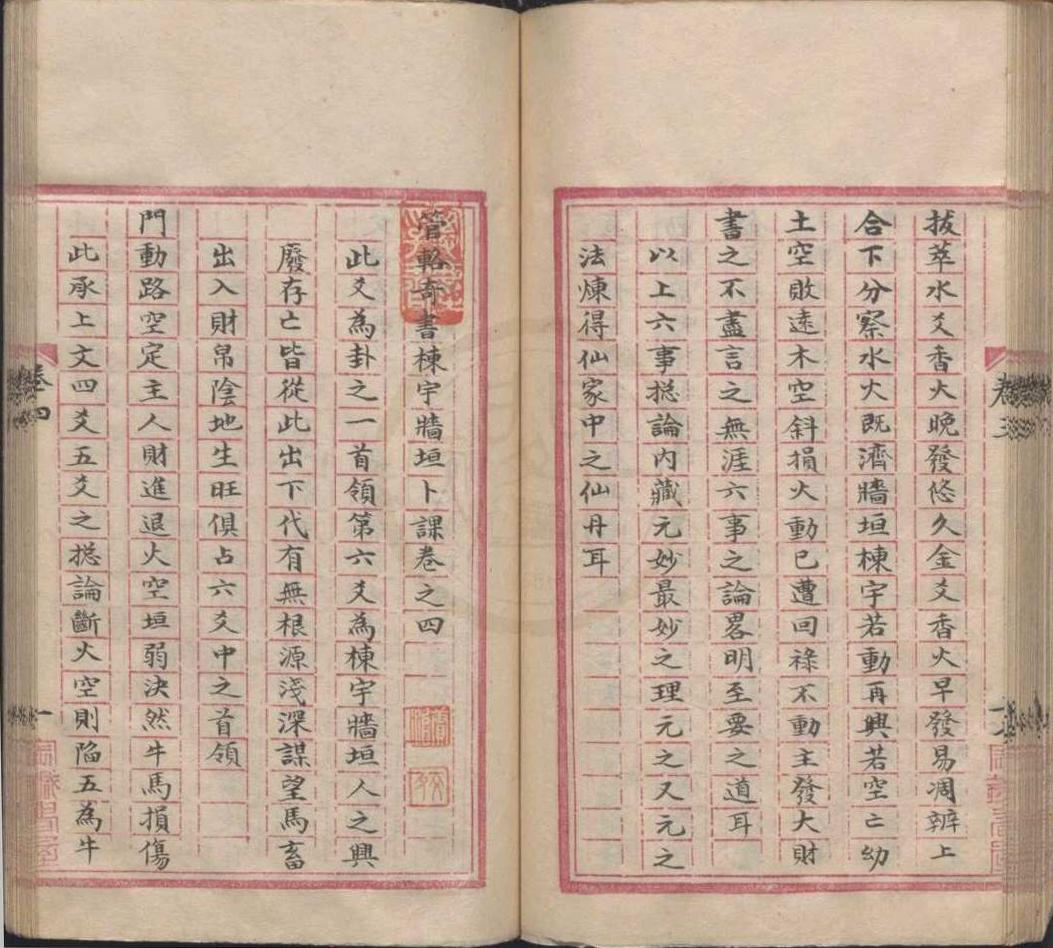 拔萃水爻香火晚發悠久金爻香火早發易凋辨上
合下分察水火既濟牆垣棟宇若動再興若空亡幼
土空敗遠木空斜損火動已遭回祿不動主發大財
書之不盡言之無涯六事之論畧明至要之道耳
以上六事搃論內藏元妙最妙之理元之又元之
法煉得仙家中之仙丹耳
管輅奇書棟宇牆垣卜課卷之四
此爻為卦之一首領第六爻為棟宇牆垣人之興
廢存亡皆從此出下代有無根源淺深謀望馬畜
出入財帛陰地生旺俱占六爻中之首領
門動路空定主人財進退火空垣弱決然牛馬損傷
此承上文四爻五爻之搃論斷火空則陷五為牛
卷四
一